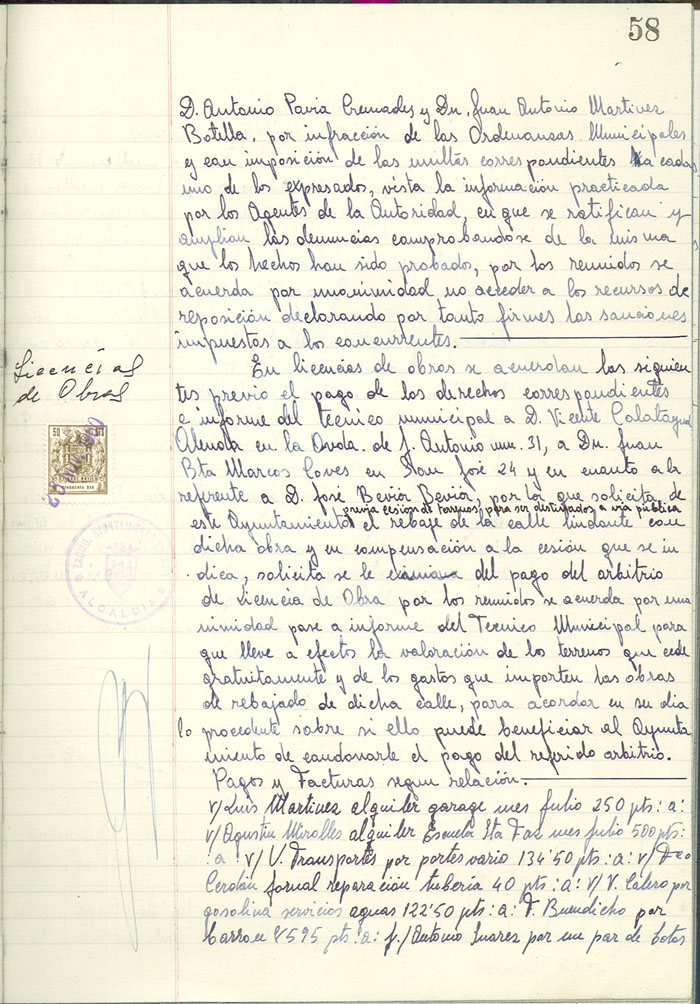 58
D. Antonio Pavia Cremades y Dn. Juan Antonio Martinez
Botella, por infracción de las Ordenanzas Municipales
y con imposición de las multas correspondientes a cada
uno de los expresados, vista la información practicada
por los Agentes de la Autoridad, en que se ratifican y
amplian las denuncias comprobandose de la misma
que los hechos han sido probados, por los reunidos se
acuerda por unanimidad no acceder a los recursos de
reposición declarando por tanto firmes las sanciones
impuestas a los concurrentes.
Licencias
de Obras
En licencias de obras se acuerdan las siguien
tes previo el pago de los derechos correspondientes
e informe del tecnico municipal a D. Vicente Calatayud
en la Avda. de J. Antonio num. 31, a Dn. Juan
Bta Marcos Coves en San José 24 y en cuanto a la
referente a D. José Beviár Beviár, por la que solicita de
previa cesión de terrenos, para ser destinados a vía pública
este Ayuntamiento el rebaje de la calle lindante con
dicha obra y en compensación a la cesión que se in
dica, solicita se le del pago del arbitrio
de Licencia de Obra por los reunidos se acuerda por una
nimidad pase a informe del Tecnico Municipal para
que lleve a efectos la valoración de los terrenos que cede
gratuitamente y de los gastos que importen las obras
de rebajado de dicha calle, para acordar en su dia
lo procedente sobre si ello puede beneficiar al Ayunta
miento de condonarle el pago del referido arbitrio.
Pagos y Facturas segun relación.
v/ Luis Martinez alquiler garage mes Julio 250 pts: a:
v/ Agustin Miralles alquiler Escuela Sta Faz mes Julio 500 pts:
: a: v/ V. Transportes por portes vario 134'50 pts: a: v/
Cerdán jornal reparación tuberia 40 pts: a: v/ V. Calero por
gasolina servicios aguas 122'50 pts: a: F. Buendicho por
595 pts: a: J./ Antonio Suarez por un par de botas
50
ALCALDIA